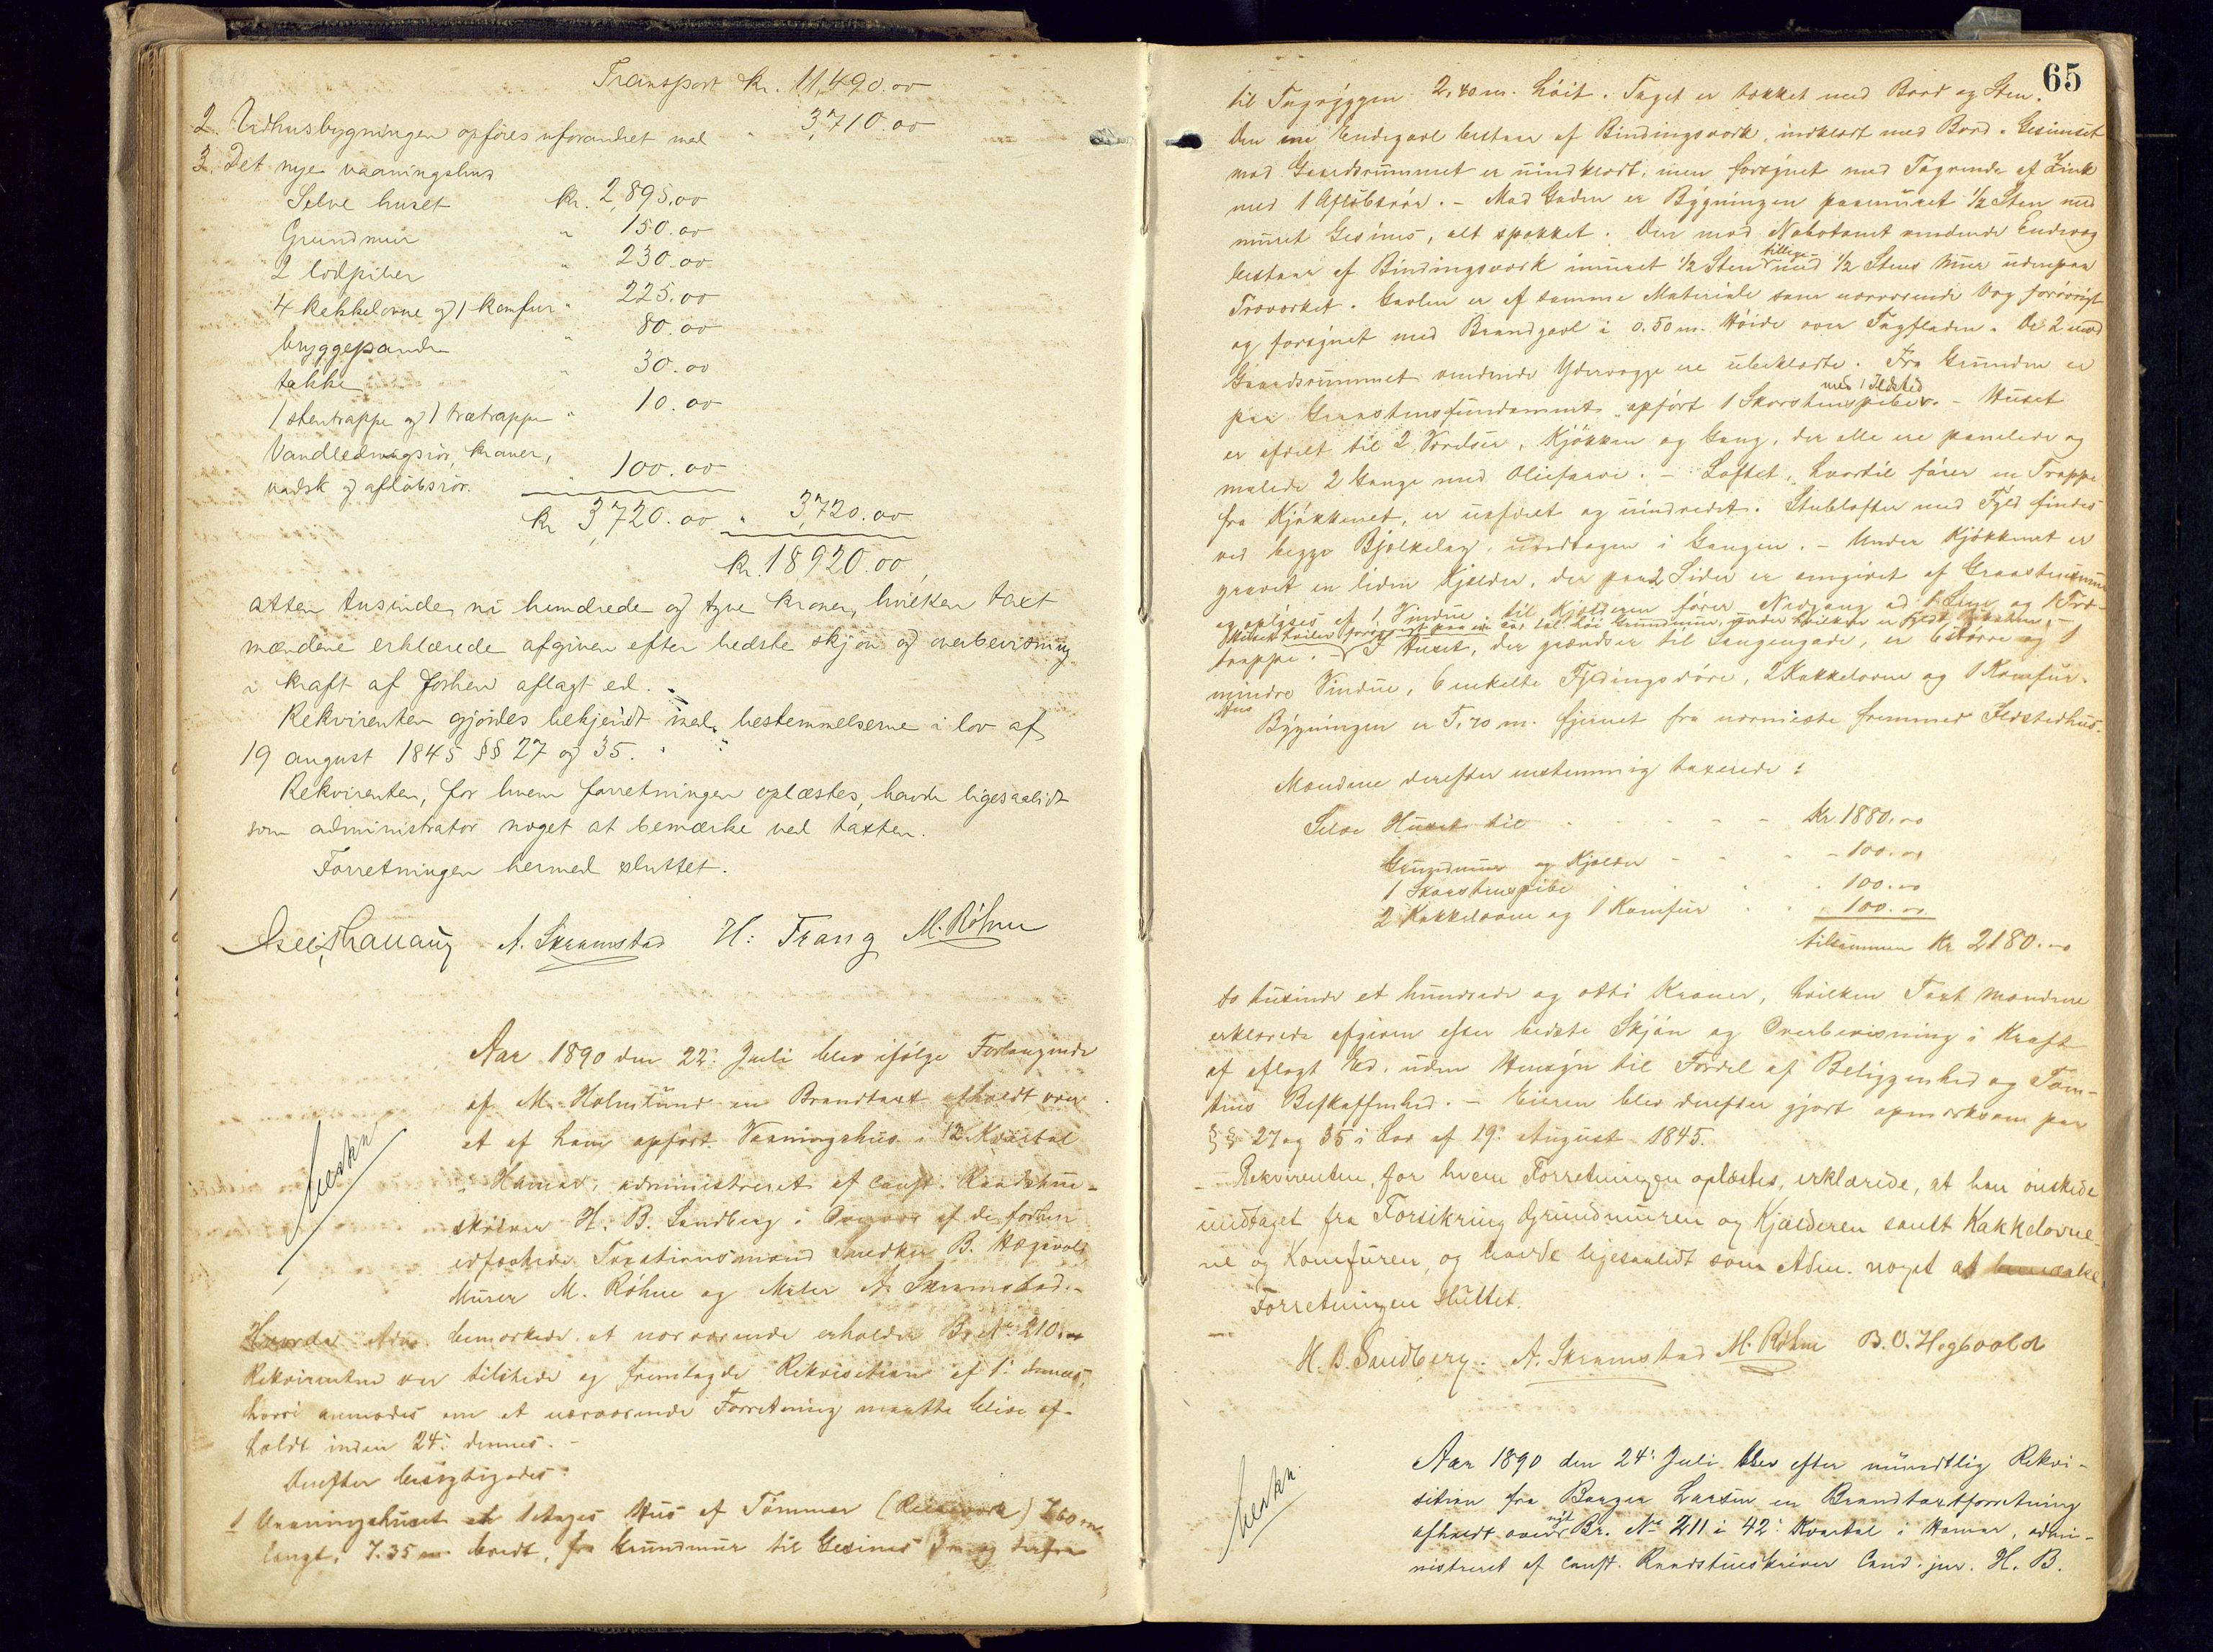 Transport kr. 11,490.00
2. Udhusbygningen opføres uforandret med " 3,710.00
3. Det nye vaaningshus
Selve huset kr. 2,895.00
Grundmur " 150.00
2 lodpiber " 230.00
4 kakkelovne og 1 komfur " 225.00
bryggepande " 80.00
takke " 30.00
1 stentrappe og 1 trætrappe " 10.00
Vandledningsrør, kraner,
vadsk og afløbsrør. " 100.00
kr 3,720.00 " 3,720.00
kr. 18,920.00,
atten tusinde ni hundrede og tyve kroner, hvilken taxt
mændene erklærede afgiven efter bedste skjøn og overbevisning
i kraft af forhen aflagt ed.
Rekvirenten gjordes bekjendt med bestemmelserne i lov af
19 august 1845 §§ 27 og 35.
Rekvirenten, for hvem forretningen oplæstes, havde ligesaalidt
som administrator noget at bemærke ved taxten.
Forretningen hermed sluttet.
A. Skramstad H: Frang M. Røhne
Aar 1890 den 22' Juli blev ifølge Forlangende
af M. Holmlund en Brandtaxt afholdt over
et af ham opført Vaaningshus i 12 Kvartal
i Hamar, administreret af const. Raadstue-
skriver H. B. Sandberg i Overvær af de forhen
edfæstede Taxationsmænd Snedker B. Hegvold
Murer M. Røhne og Maler A. Skramstad.-
beskr
Hvorda Adm. bemærkede at nærværende erholder Br. No 210.
Rekvirenten var tilstede og fremlagde Rekvisition af 1' dennes,
hvori anmodes om at nærværende Forretning maatte blive af-
holdt inden 24' dennes. -
Derefter besigtigedes:
1 Vaaningshuset et 1 Etages Hus af Tømmer (Reisverk) 7.60 m
langt, 7.35 m bredt, fra Grundmur til Gesims 3 m og derfra
65
til Tagryggen 2,40 m. høit. Taget er tækket med Bord og Sten.
Den ene Endegavl bestaar af Bindingsværk, indklædt med Bord. Gesimset
mod Gaardsrummet er uindklædt, men forsynet med Tagrende af Zink
med 1 Afløbsrør. - Mod Gaden er Bygningen paamuret 1/2 Sten med
muret Gesims, alt spækket. Den mod Nabotomt vendende Endevæg
bestaar af Bindingsværk imuret 1/2 Sten tillige med 1/2 Stens Mur udenpaa
Træværket. Gavlen er af samme Materiale som nærværende Væg forøvrigt
og forsynet med Brandgavl i 0.50 m. Høide over Tagfladen. De 2 mod
Gaardsrummet vendende Ydervægge ere ubeklædte. Fra Grunden er
paa Graastensfundament opført 1 Skorstenspibe med 1 Ildsted. - Huset
er afdelt til 2 Værelser, Kjøkken og Gang, der alle ere panelede og
malede 2 Gange med Oliefarve. - Loftet, hvortil fører en Trappe
fra Kjøkkenet, er uafdelt og uindredet. Stubloftet med Fyld findes
ved begge Bjelkelag, undtagen i Gangen. - Under Kjøkkenet er
gravet en liden Kjelder, der paa 2 Sider er omgivet af Graastensmur
og oplyses af 1 Vindue, til Kjelderen fører Nedgang ad 1 Luge og 1 Træ-
trappe. - I Huset, der grændser til Langengade, er 6 større og 1
mindre Vindue, 6 enkelte Fyldingsdøre, 2 Kakkelovne og 1 Komfur.
Bygningen er 5,70 m. fjernet fra nærmeste fremmed Ildstedhus.
Mændene derefter enstemmig taxerede:
Selve Huset til Kr. 1880.00
Grundmur og Kjelder - 100.00
1 Skorstenspibe " 100.00
2 Kakkelovne og 1 Komfur " 100.00
tilsammen Kr 2180.00
to tusinde et hundrede og otti Kroner, hvilken Taxt Mændene
erklærede afgiven efter bedste Skjøn og Overbevisning i Kraft
af aflagt Ed, uden Hensyn til Fordel af Beliggenhed og Tom-
tens Beskaffenhed. - Eieren blev derefter gjort opmærksom paa
§§ 27 og 35 i Lov af 19' August 1845.
- Rekvirenten, for hvem Forretningen oplæstes, erklærede, at han ønskede
undtaget fra Forsikring Grundmuren og Kjælderen samt Kakkelovne-
ne og Komfuren, og havde ligesaalidt som Adm. noget at bemærke.
Forretningen sluttet.
H. B. Sandberg. A. Skramstad M. Røhne B. O. Hegvold
beskr.
Aar 1890 den 24' Juli blev efter mundtlig Rekvi-
sition fra Borger Larsen en Brandtaxtforretning
afholdt over nyt Br. No 211 i 42' Kvartal i Hamar, admi-
nistreret af const. Raadstueskriver Cand. jur. H. B.